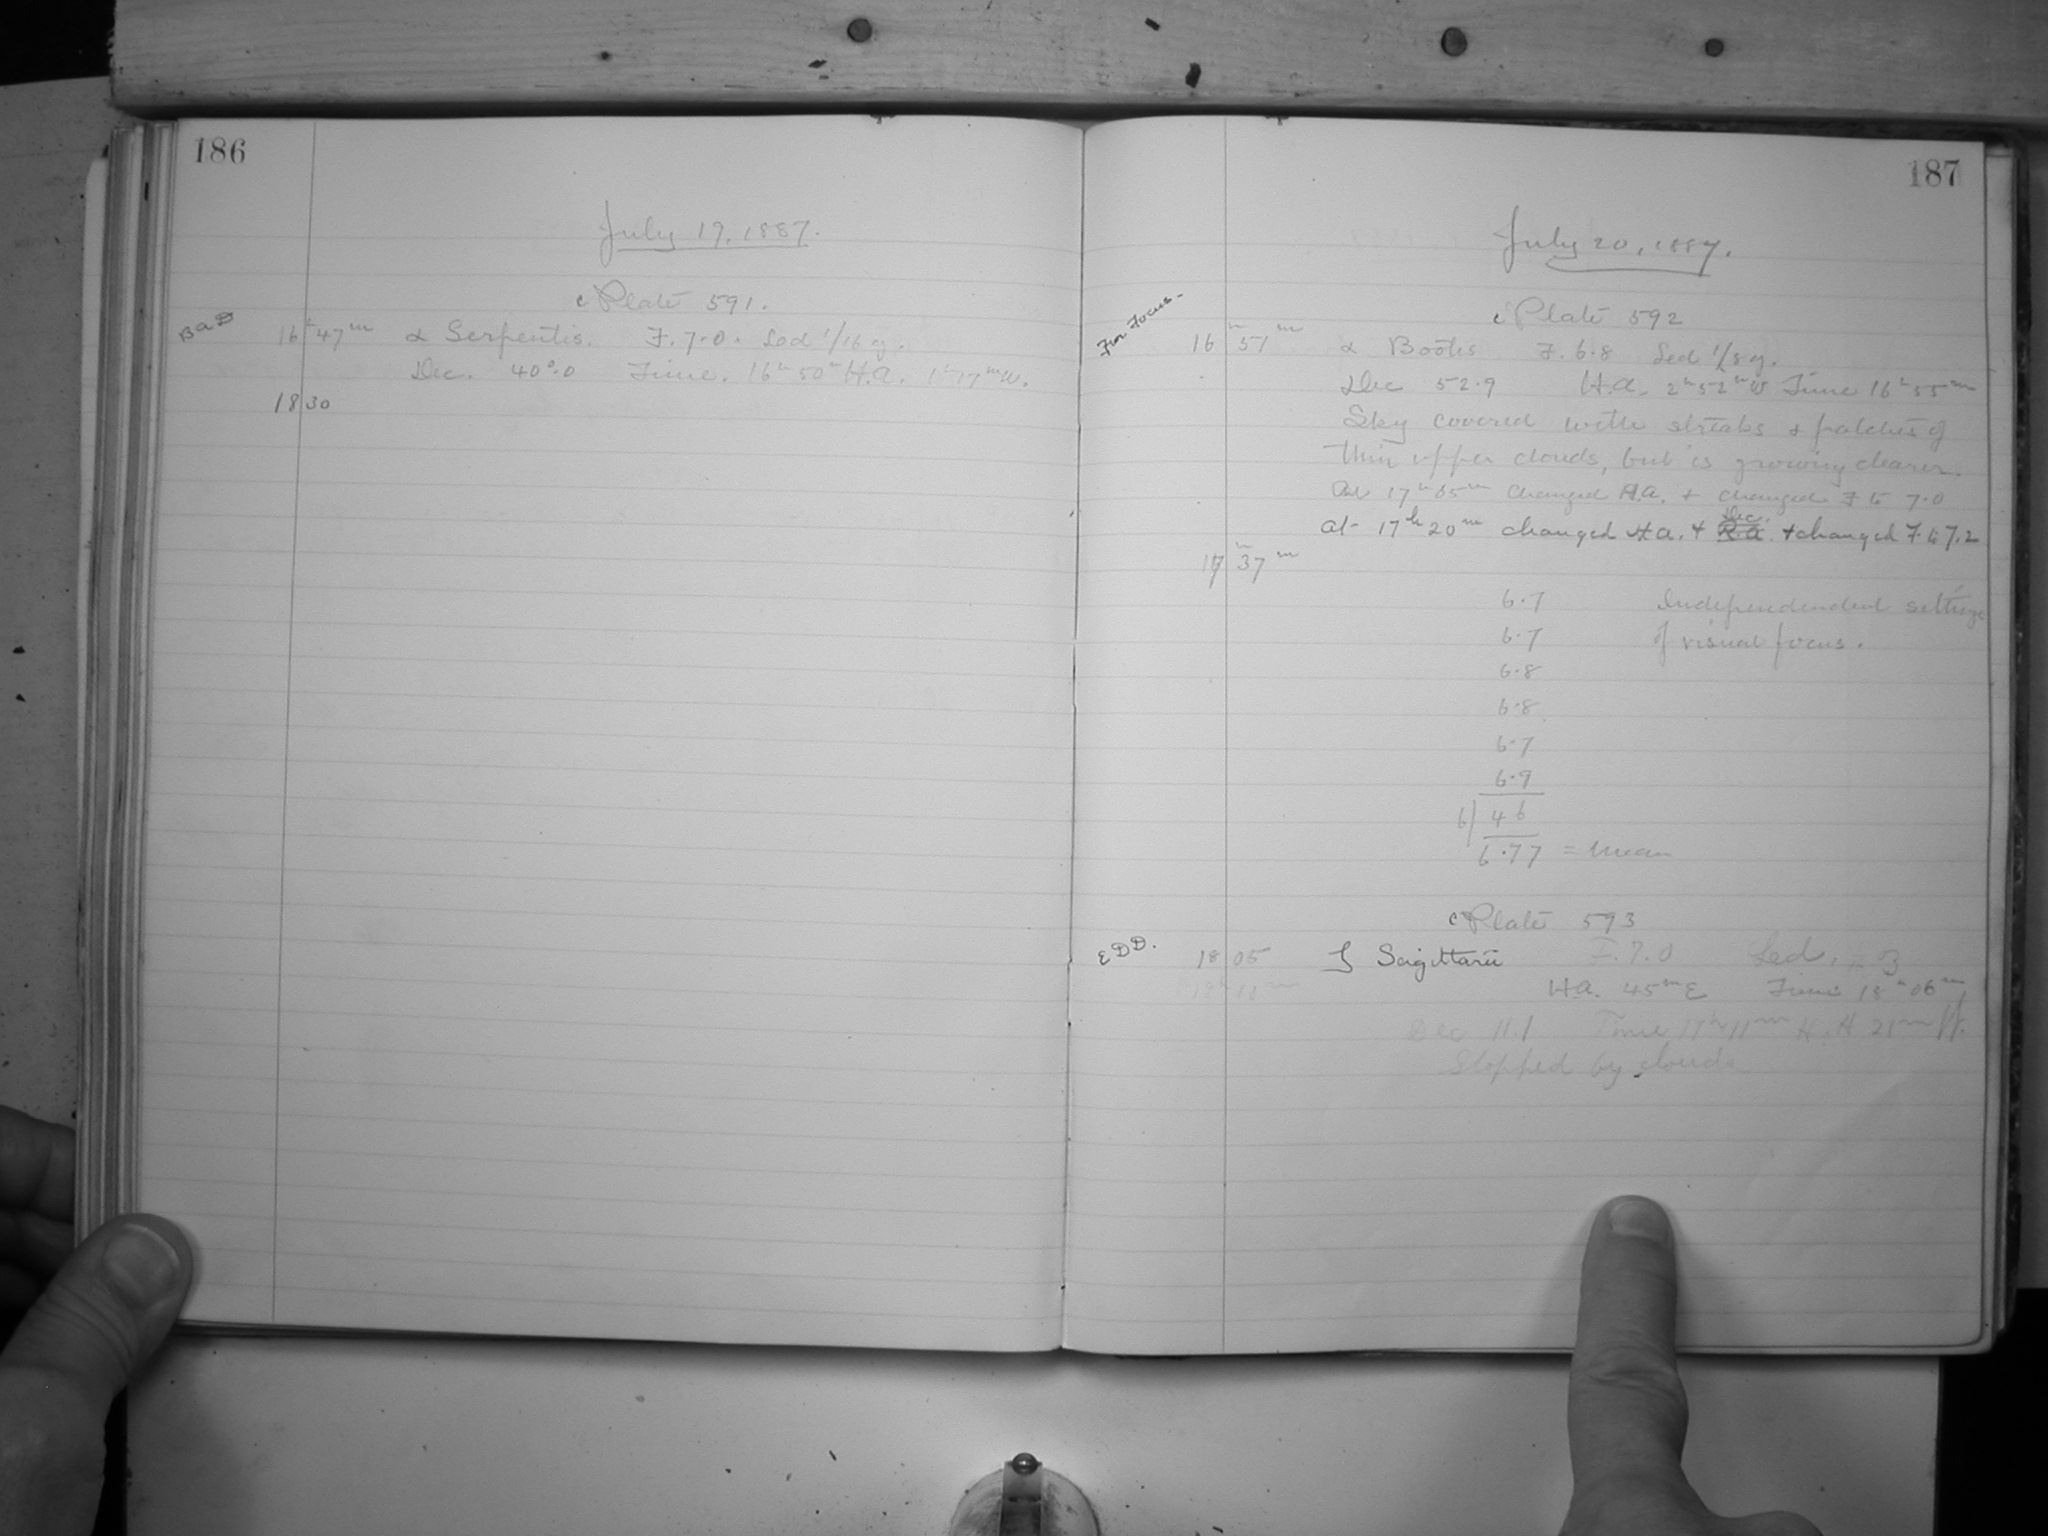 186
July 19, 1887.
c Plate 591.
BaD 16h 47m α Serpentis. F. 7.0. Led 1/16 g.
Dec. 40°.0 Time. 16h 50m H.a. 1h 17m W.
18 30
187
July 20, 1887.
c Plate 592
For Focus.
16h 51m α Bootis F. 6.8 Led 1/8 g.
Dec 52.9 H.a. 2h 52m W Time 16h 55m
Sky covered with streaks & patches of
thin upper clouds, but is growing clearer.
At 17h 05m changed H.a. & changed F to 7.0
at 17h 20m changed H.a. & Dec. & changed F to 7.2
17h 37m
6.7 Independendent settings
6.7 of visual focus.
6.8
6.8
6.7
6.9
6) 46
6.77 = mean
c Plate 593
EDD. 18 05 ζ Sagittarii F. 7.0 Led.
H.a. 45m E Time 18h 06m
Dec 11.1 Time 19h 11m H.A 21m W.
Stopped by clouds